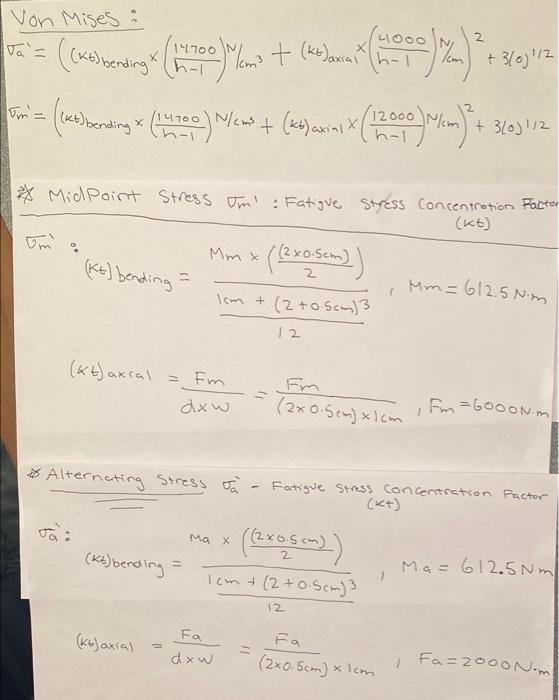 Von Mises :
σa' = ((Kt)bending × (14700/h-1) N/cm³ + (kt)axial × (4000/h-1) N/cm)² + 3(0)^1/2
σm' = ((kt)bending × (14700/h-1) N/cm³ + (kt)axial × (12000/h-1) N/cm)² + 3(0)^1/2
* MidPoint Stress σm' : Fatigue Stress Concentration Factor
(kt)
σm' :
(Kt)bending = Mm × ((2×0.5cm)/2) / (1cm + (2+0.5cm)³/12) , Mm = 612.5 N·m
(Kt)axial = Fm/d×w = Fm/(2×0.5cm)×1cm , Fm = 6000N·m
* Alternating Stress σa' - Fatigue Stress Concentration Factor
(Kt)
σa' :
(Kt)bending = Ma × ((2×0.5cm)/2) / (1cm + (2+0.5cm)³/12) , Ma = 612.5 Nm
(kt)axial = Fa/d×w = Fa/(2×0.5cm)×1cm , Fa = 2000N·m